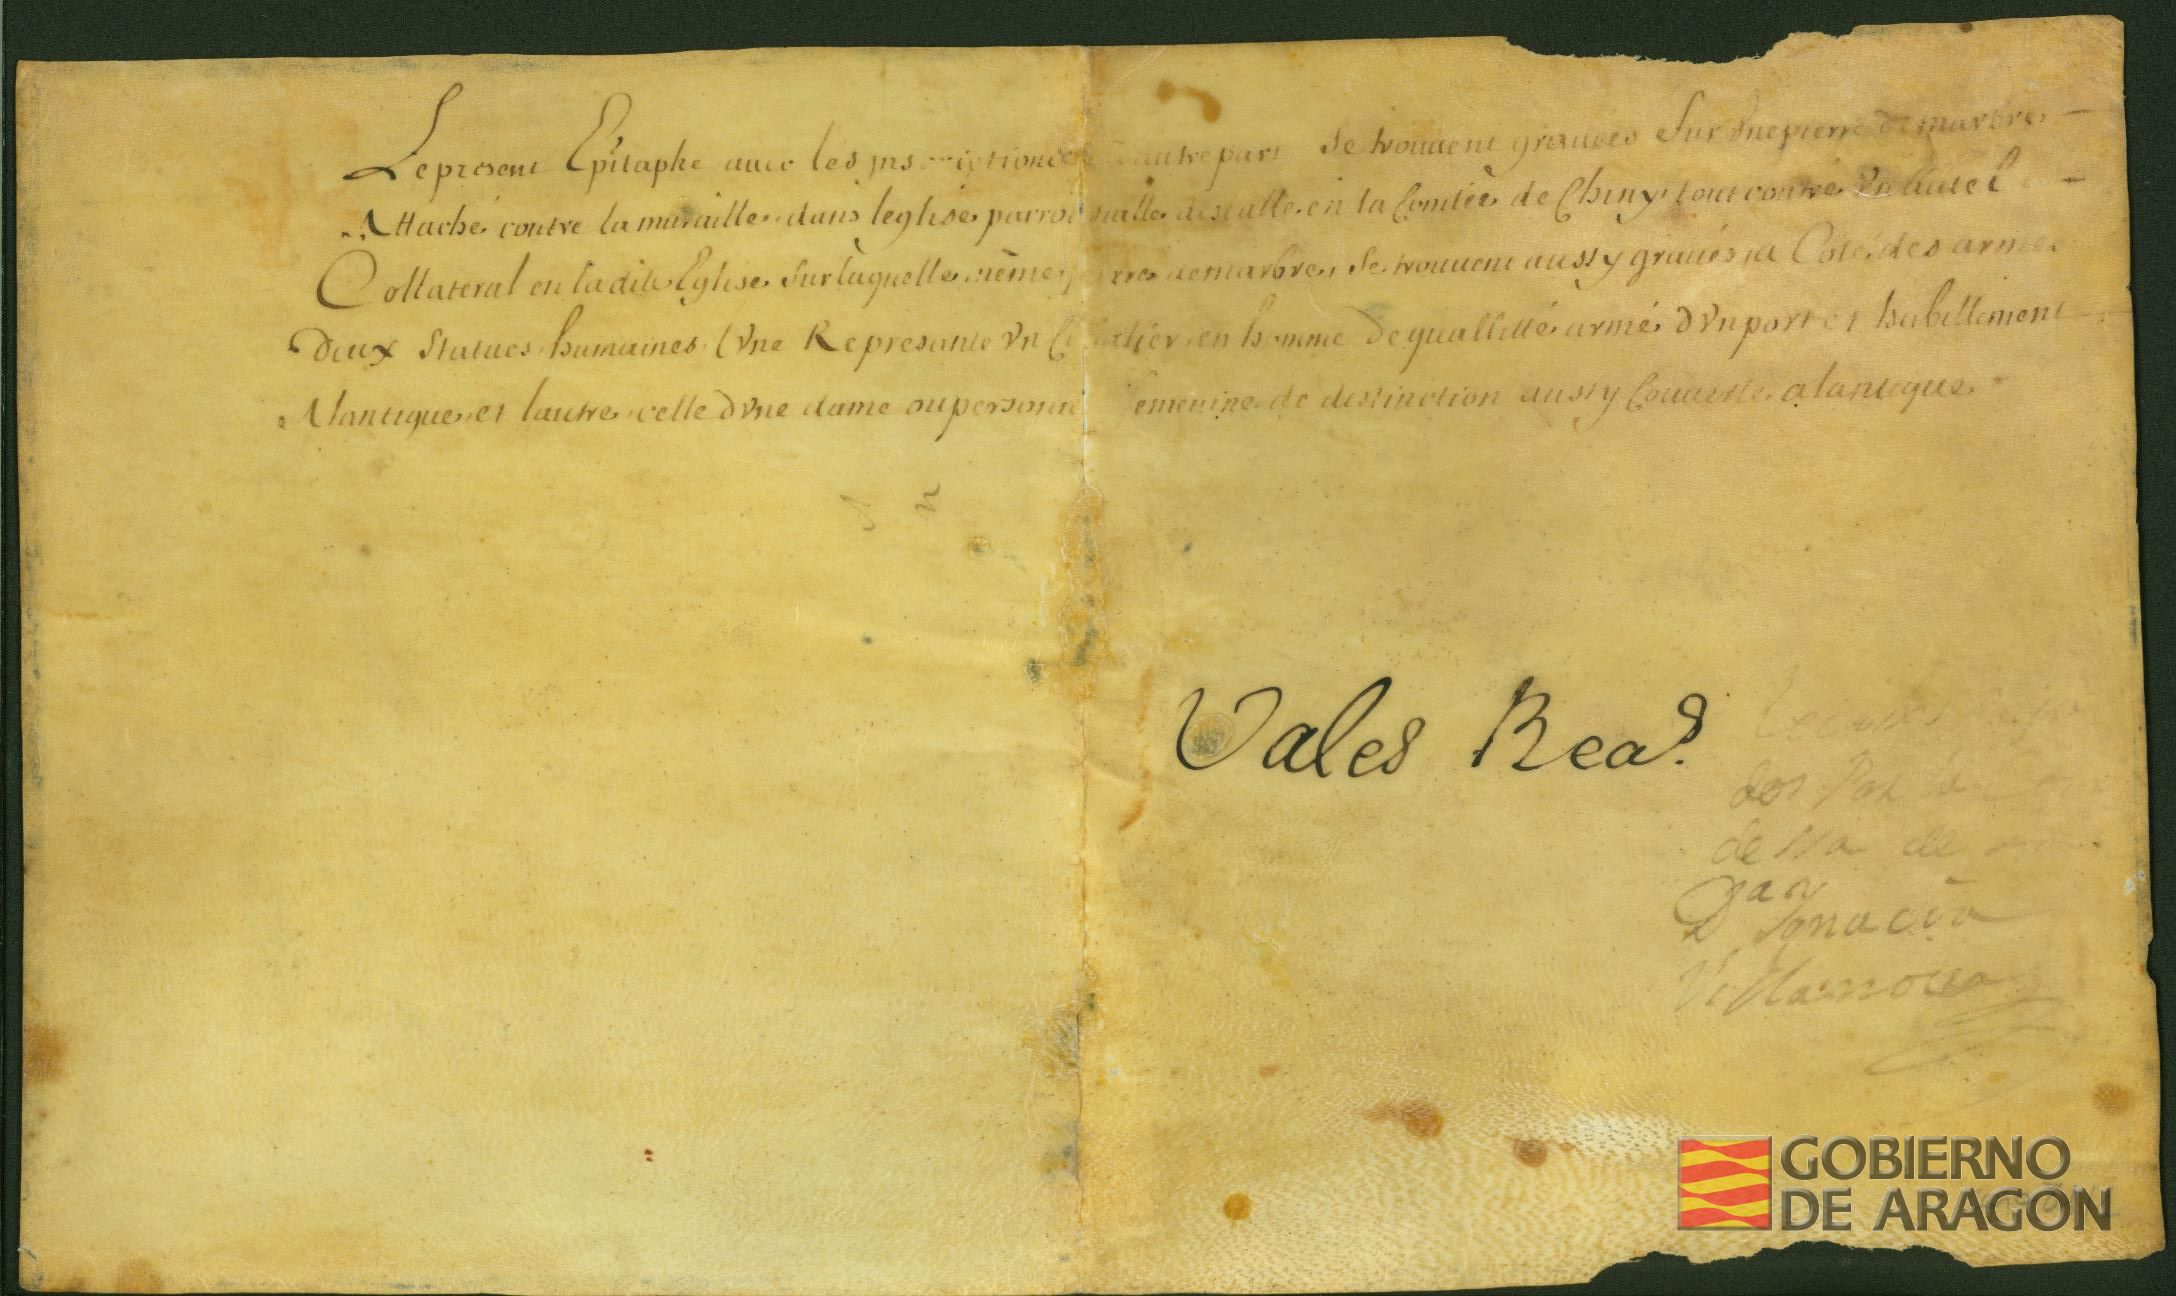 Le present Epitaphe auec les jnscriptions autrepart Se trouuent grauées Sur Vnepierre de marbre
Attaché contre la muraille dans leglise parroissialle en la Comtée de Chiny tout contre Vn autel
Collateral en ladite Eglise Sur laquelle même pierre de marbre, Se trouuent aussy grauées a Coté des armes
Deux Statues humaines, lVne Represante Vn Caualier, en homme De quallitté armé, dVn port et habillement
Alantique, et lautre celle dVne dame ou personne femenine de distinction aussy Couuerte alantique
Vales Rea.s
dos Por la
de ssa de
D.n Ygnacio
Villanoua
GOBIERNO
DE ARAGON